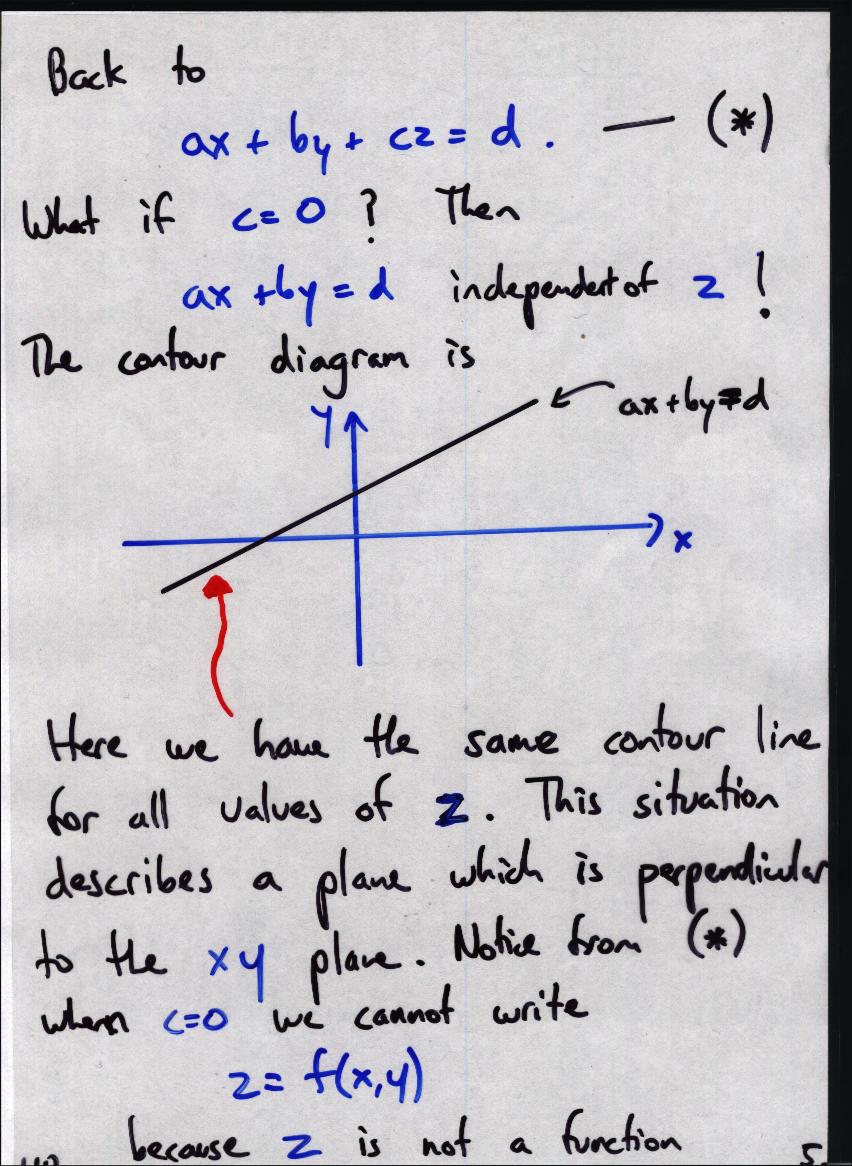 Back to
ax + by + cz = d . — (*)
What if c = 0 ? Then
ax + by = d independent of z !
The contour diagram is
y
ax + by = d
x
Here we have the same contour line
for all values of z. This situation
describes a plane which is perpendicular
to the xy plane. Notice from (*)
when c=0 we cannot write
z = f(x,y)
because z is not a function
5